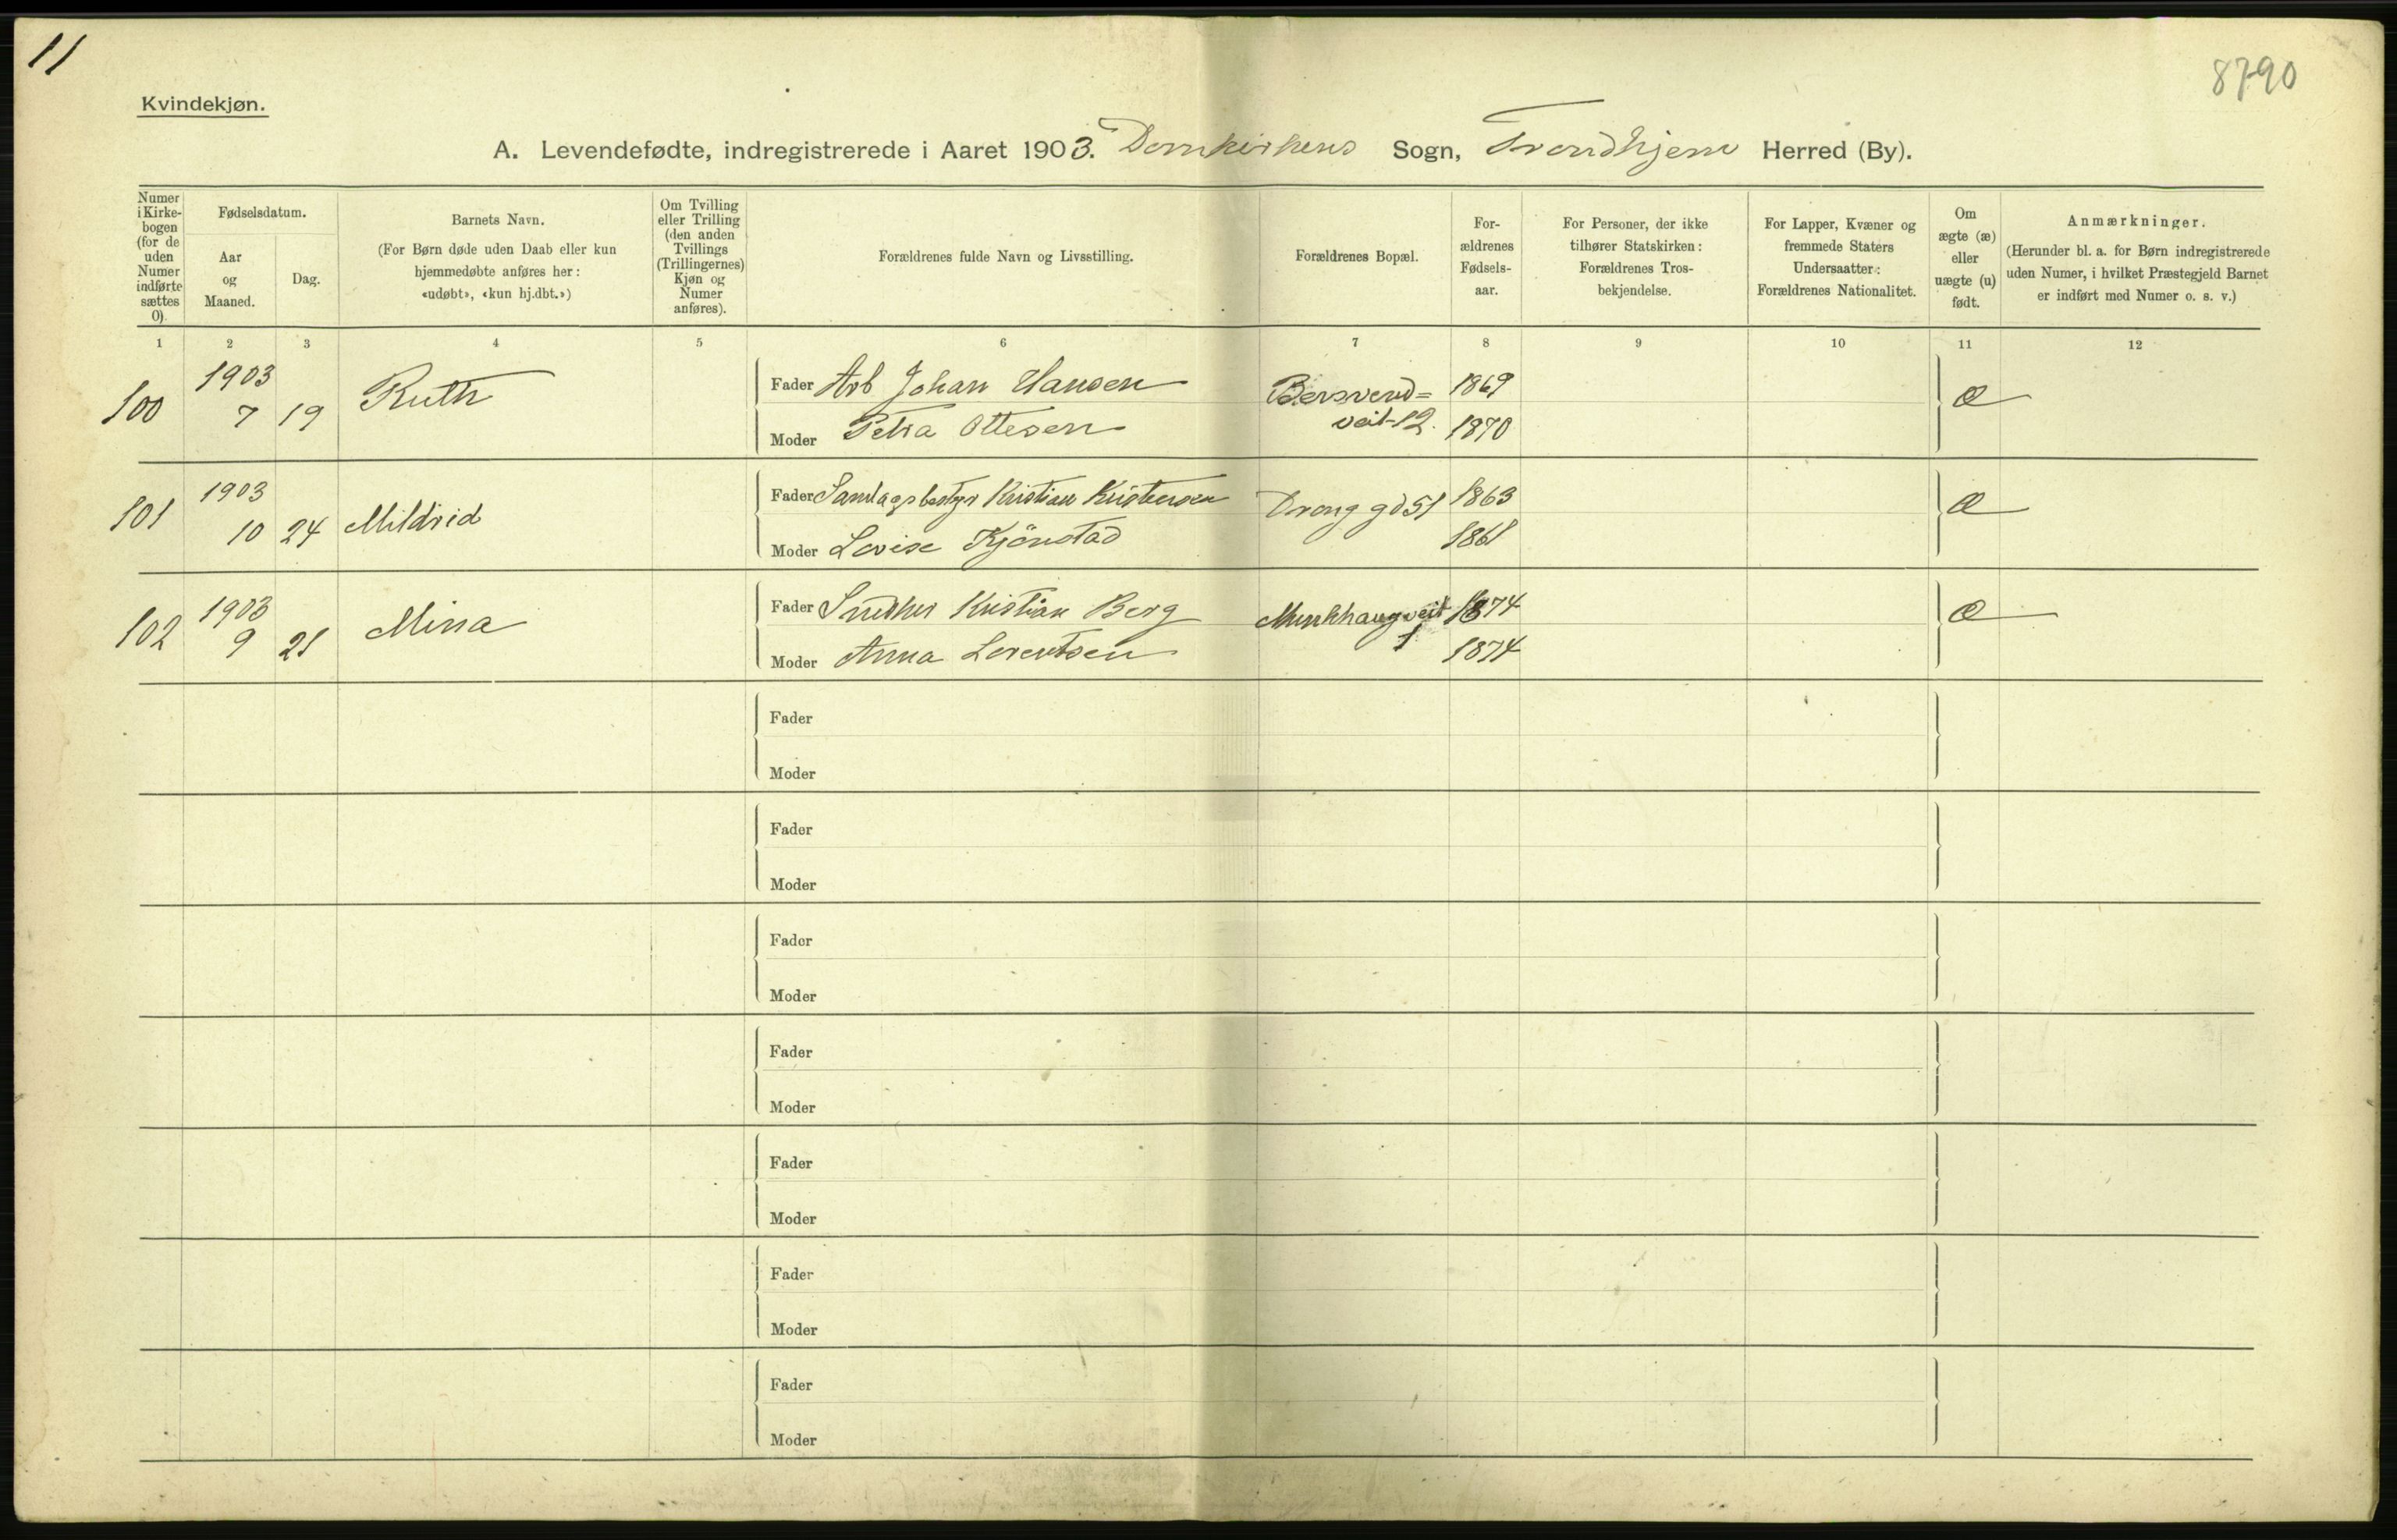 11
8790
Kvindekjøn.
A. Levendefødte, indregistrerede i Aaret 1903. Domkirkens Sogn, Trondhjem Herred (By).
Numer i Kirkebogen (for de uden Numer indførte sættes 0).
Fødselsdatum.
Aar og Maaned.
Dag.
Barnets Navn.
(For Børn døde uden Daab eller kun
hjemmedøbte anføres her:
«udøbt», «kun hj.dbt.»)
Om Tvilling
eller Trilling
(den anden
Tvillings
(Trillingernes)
Kjøn og
Numer
anføres).
Forældrenes fulde Navn og Livsstilling.
Forældrenes Bopæl.
For-
ældrenes
Fødsels-
aar.
For Personer, der ikke
tilhører Statskirken:
Forældrenes Tros-
bekjendelse.
For Lapper, Kvæner og
fremmede Staters
Undersaatter:
Forældrenes Nationalitet.
Om
ægte (æ)
eller
uægte (u)
født.
Anmærkninger.
(Herunder bl. a. for Børn indregistrerede
uden Numer, i hvilket Præstegjeld Barnet
er indført med Numer o. s. v.)
1 2 3 4 5 6 7 8 9 10 11 12
100 1903 7 19 Ruth
Fader Arb Johan Hansen Bersvend= 1869 æ
Moder Petra Ottesen veit-12. 1870
101 1903 10 24 Mildrid
Fader Samlagsbestyr Kristian Kristensen Drong gd 51 1863 æ
Moder Lovise Kjönstad 1861
102 1903 9 21 Mina
Fader Snedker Kristian Berg Munkhaugveit 1874 æ
Moder Anna Lorentsen 1 1874
Fader
Moder
Fader
Moder
Fader
Moder
Fader
Moder
Fader
Moder
Fader
Moder
Fader
Moder